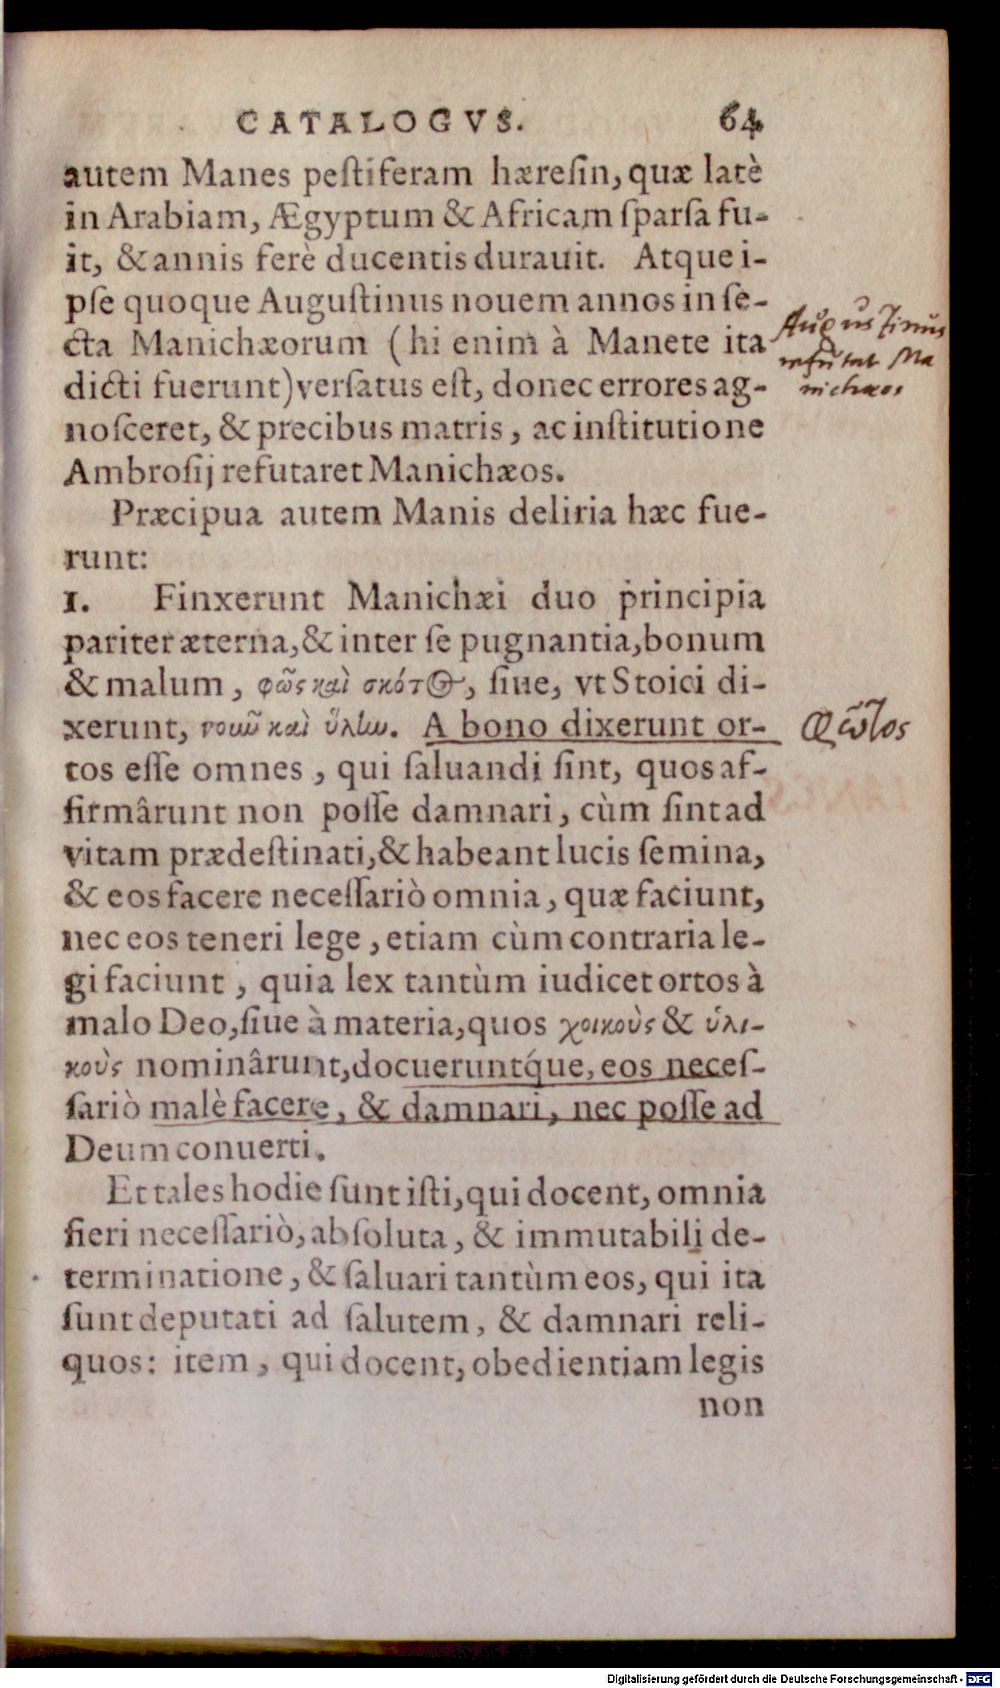 CATALOGVS. 64
autem Manes peſtiferam hæreſin, quæ latè
in Arabiam, Ægyptum & Africam ſparſa fu-
it, & annis ferè ducentis durauit. Atque i-
pſe quoque Auguſtinus nouem annos in ſe-
cta Manichæorum (hi enim à Manete ita
dicti fuerunt) verſatus eſt, donec errores ag-
noſceret, & precibus matris, ac inſtitutione
Ambroſij refutaret Manichæos.
Auguſtinus
refutat Ma
nichæos
Præcipua autem Manis deliria hæc fue-
runt:
1. Finxerunt Manichæi duo principia
pariter æterna, & inter ſe pugnantia, bonum
& malum, φῶς καὶ σκότος, ſiue, vt Stoici di-
xerunt, νουῦ καὶ ὕλην. A bono dixerunt or-
tos eſſe omnes, qui ſaluandi ſint, quos af-
firmârunt non poſſe damnari, cùm ſint ad
vitam prædeſtinati, & habeant lucis ſemina,
& eos facere neceſſariò omnia, quæ faciunt,
nec eos teneri lege, etiam cùm contraria le-
gi faciunt, quia lex tantùm iudicet ortos à
malo Deo, ſiue à materia, quos χοικοὺς & ὑλι-
κοὺς nominârunt, docueruntq́ue, eos neceſ-
ſariò malè facere, & damnari, nec poſſe ad
Deum conuerti.
Et tales hodie ſunt iſti, qui docent, omnia
fieri neceſſariò, abſoluta, & immutabili de-
terminatione, & ſaluari tantùm eos, qui ita
ſunt deputati ad ſalutem, & damnari reli-
quos: item, qui docent, obedientiam legis
non
Digitalisierung gefördert durch die Deutsche Forschungsgemeinschaft - DFG